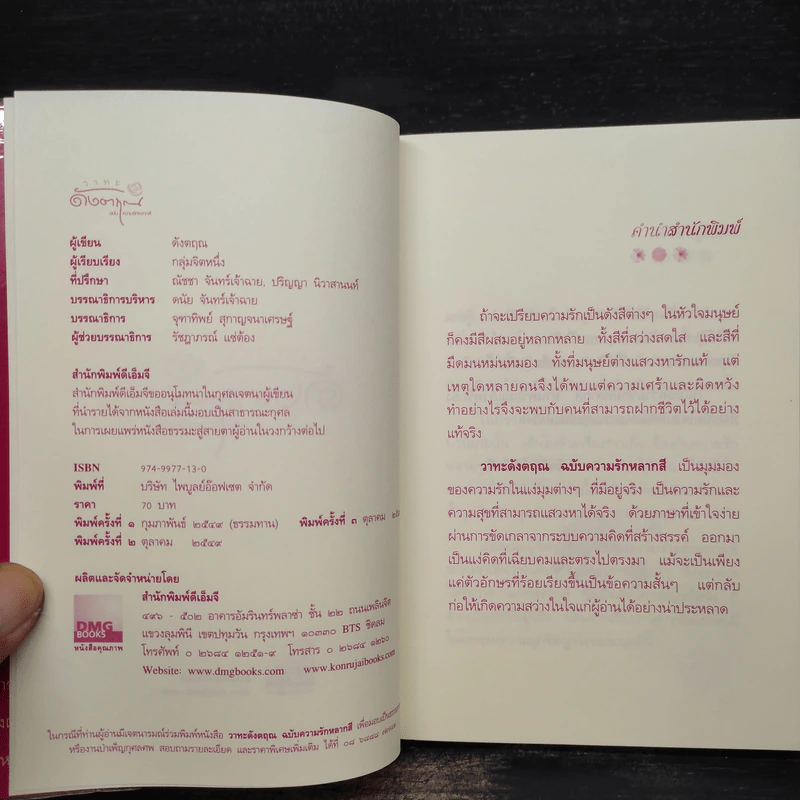 วาทะ
ดังตฤณ
ฉบับ ความรักหลากสี
ผู้เขียน ดังตฤณ
ผู้เรียบเรียง กลุ่มจิตหนึ่ง
ที่ปรึกษา ณัชชา จันทร์เจ้าฉาย, ปริญญา นิวาสานนท์
บรรณาธิการบริหาร ดนัย จันทร์เจ้าฉาย
บรรณาธิการ จุฑาทิพย์ สุกาญจนาเศรษฐ์
ผู้ช่วยบรรณาธิการ รัชฎาภรณ์ แซ่ต้อง
สำนักพิมพ์ดีเอ็มจี
สำนักพิมพ์ดีเอ็มจีขออนุโมทนาในกุศลเจตนาผู้เขียน
ที่นำรายได้จากหนังสือเล่มนี้มอบเป็นสาธารณะกุศล
ในการเผยแพร่หนังสือธรรมะสู่สายตาผู้อ่านในวงกว้างต่อไป
ISBN 974-9977-13-0
พิมพ์ที่ บริษัท ไพบูลย์อ๊อฟเซต จำกัด
ราคา 70 บาท
พิมพ์ครั้งที่ ๑ กุมภาพันธ์ ๒๕๔๙ (ธรรมทาน) พิมพ์ครั้งที่ ๓ ตุลาคม
พิมพ์ครั้งที่ ๒ ตุลาคม ๒๕๔๙
ผลิตและจัดจำหน่ายโดย
สำนักพิมพ์ดีเอ็มจี
๔๙๖ - ๕๐๒ อาคารอัมรินทร์พลาซ่า ชั้น ๒๒ ถนนเพลินจิต
แขวงลุมพินี เขตปทุมวัน กรุงเทพฯ ๑๐๓๓๐ BTS ชิดลม
โทรศัพท์ ๐ ๒๖๘๔ ๑๒๕๑-๙ โทรสาร ๐ ๒๖๘๔ ๑๒๖๐
Website: www.dmgbooks.com www.konrujaibooks.com
DMG
BOOKS
หนังสือคุณภาพ
ในกรณีที่ท่านผู้อ่านมีเจตนารมณ์ร่วมพิมพ์หนังสือ วาทะดังตฤณ ฉบับความรักหลากสี เพื่อมอบเป็น
หรืองานบำเพ็ญกุศลศพ สอบถามรายละเอียด และราคาพิเศษเพิ่มเติม ได้ที่ ๐๘ ๖๘๘๘
คำนำสำนักพิมพ์
ถ้าจะเปรียบความรักเป็นดังสีต่างๆ ในหัวใจมนุษย์
ก็คงมีสีผสมอยู่หลากหลาย ทั้งสีที่สว่างสดใส และสีที่
มืดมนหม่นหมอง ทั้งที่มนุษย์ต่างแสวงหารักแท้ แต่
เหตุใดหลายคนจึงได้พบแต่ความเศร้าและผิดหวัง
ทำอย่างไรจึงจะพบกับคนที่สามารถฝากชีวิตไว้ได้อย่าง
แท้จริง
วาทะดังตฤณ ฉบับความรักหลากสี เป็นมุมมอง
ของความรักในแง่มุมต่างๆ ที่มีอยู่จริง เป็นความรักและ
ความสุขที่สามารถแสวงหาได้จริง ด้วยภาษาที่เข้าใจง่าย
ผ่านการขัดเกลาจากระบบความคิดที่สร้างสรรค์ ออกมา
เป็นแง่คิดที่เฉียบคมและตรงไปตรงมา แม้จะเป็นเพียง
แค่ตัวอักษรที่ร้อยเรียงขึ้นเป็นข้อความสั้นๆ แต่กลับ
ก่อให้เกิดความสว่างในใจแก่ผู้อ่านได้อย่างน่าประหลาด